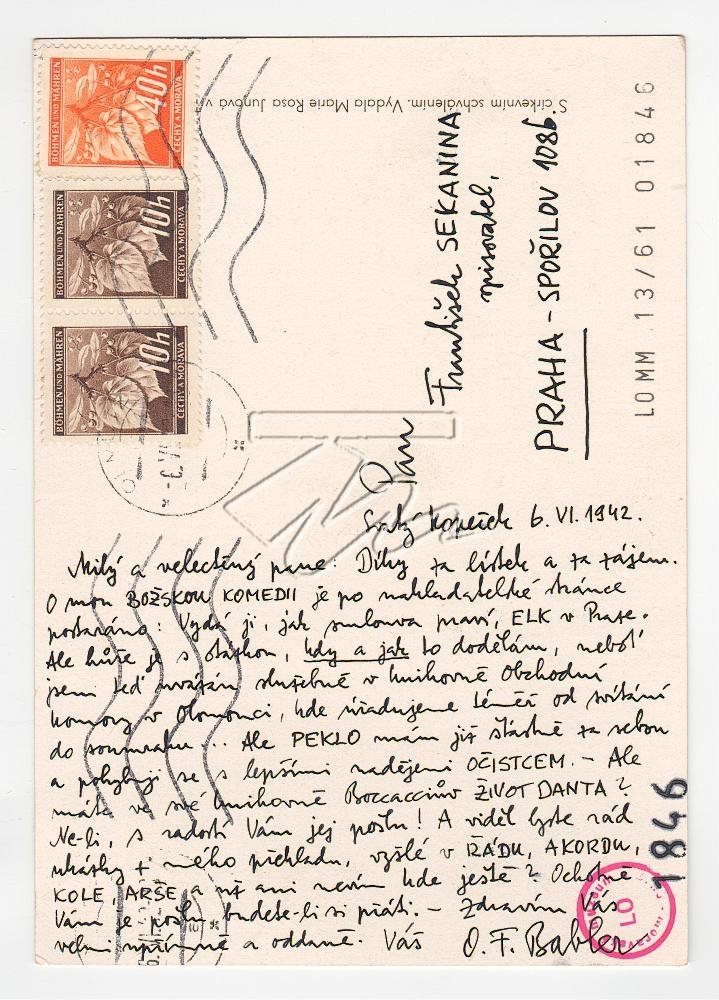 BÖHMEN UND MÄHREN
40h
ČECHY A MORAVA
BÖHMEN UND MÄHREN
10h
ČECHY A MORAVA
BÖHMEN UND MÄHREN
10h
ČECHY A MORAVA
S církevním schválením. Vydala Marie Rosa Junová v
LOMM 13/61 01846
Pan
František SEKANINA
spisovatel,
PRAHA - SPOŘILOV 1086.
Svatý Kopeček 6. VI. 1942.
Milý a velectěný pane: Díky za lístek a za zájem.
O mou BOŽSKOU KOMEDII je po nakladatelské stránce
postaráno: Vydá ji, jak smlouva praví, ELK v Praze.
Ale hůře je s otázkou, kdy a jak to dodělám, neboť
jsem teď uvázán služebně v knihovně Obchodní
komory v Olomouci, kde úřadujeme téměř od svítání
do soumraku... Ale PEKLO mám již šťastně za sebou
a pohybuji se s lepšími nadějemi OČISTCEM. - Ale
máte ve své knihovně Boccacciův ŽIVOT DANTA?
Ne-li, s radostí Vám jej pošlu! A viděl byste rád
ukázky z mého překladu, vyšlé v ŘÁDU, AKORDU,
KOLE, ARŠE a už ani nevím kde ještě? Ochotně
Vám je pošlu budete-li si přáti. - Zdravím Vás
velmi upřímně a oddaně. Váš O. F. Babler
1846
LO